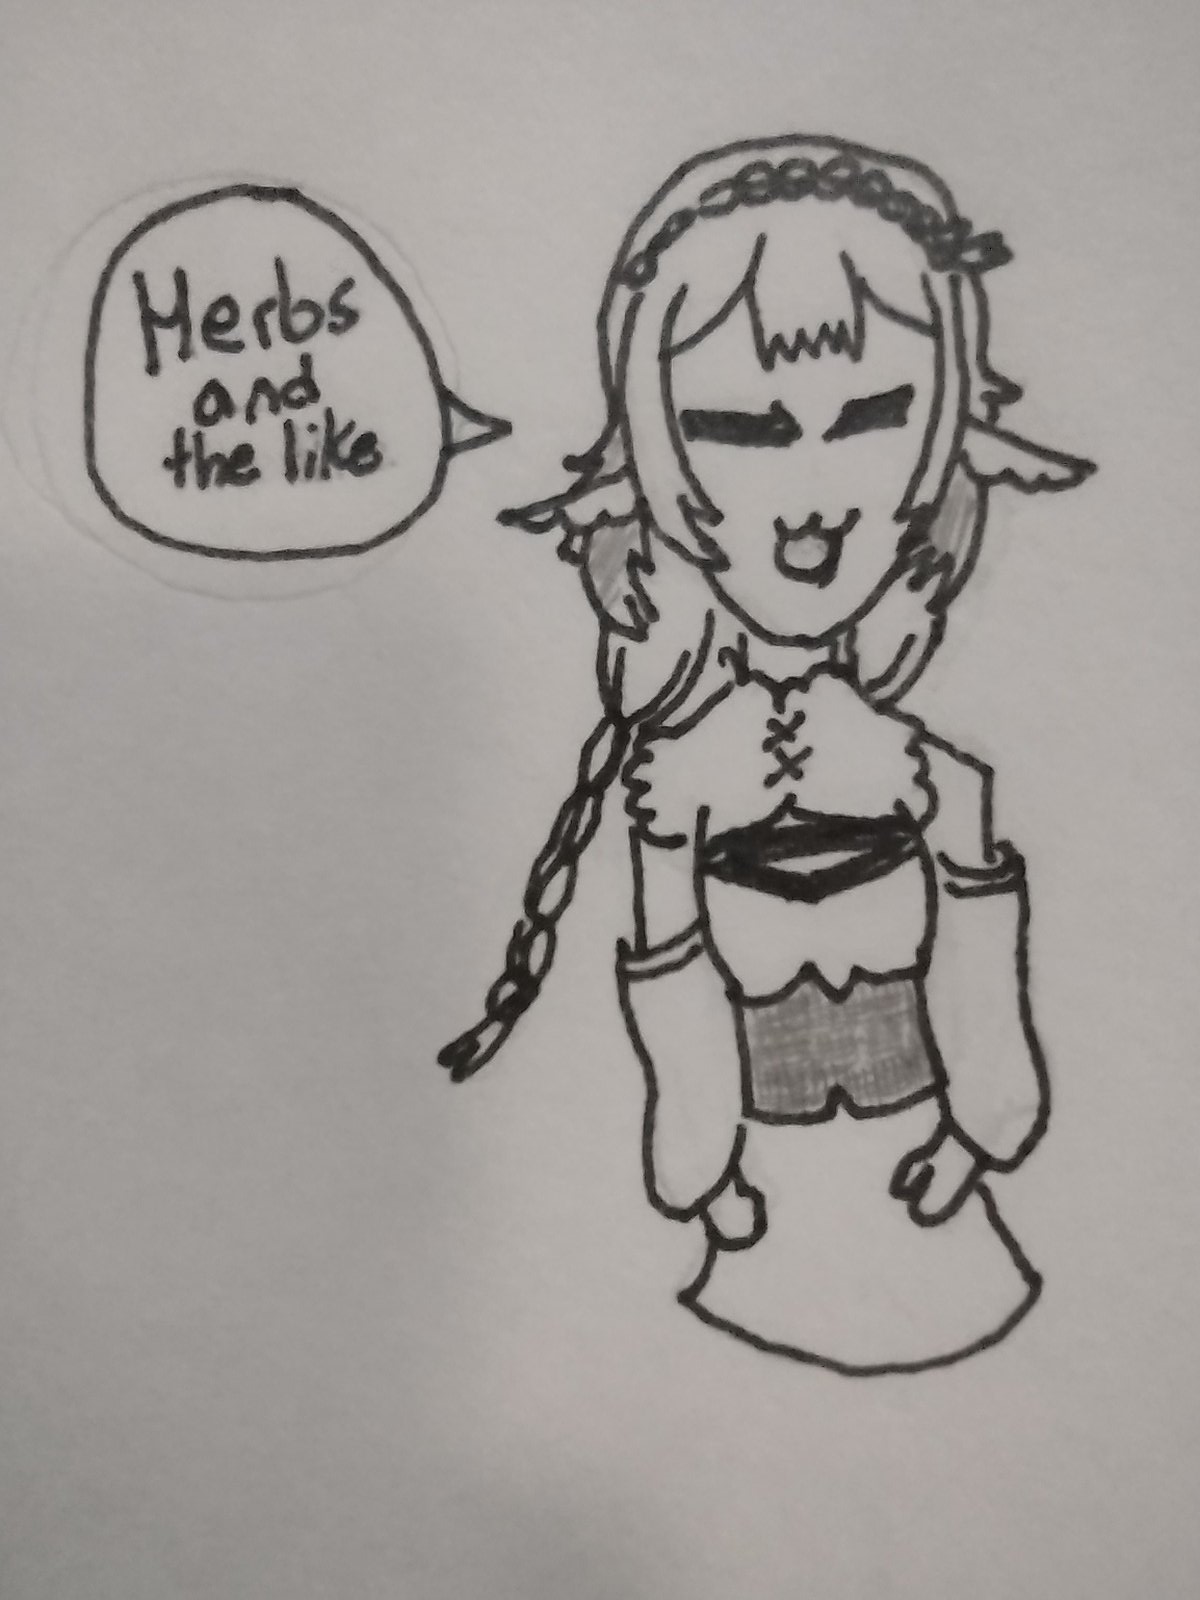 Herbs
and
the like